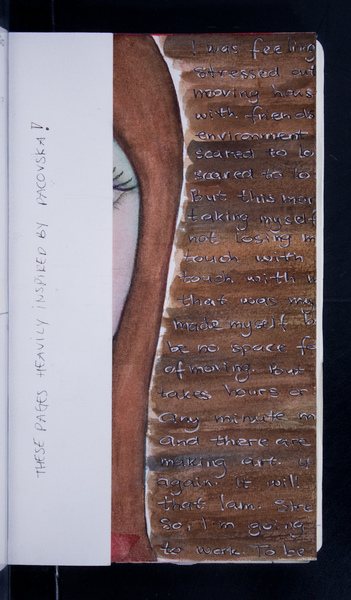 THESE PAGES HEAVILY INSPIRED BY PACOVSKA!
I was feeling
stressed out
moving hous
with friends
environment
scared to lo
scared to lo
But this mor
taking myself
not losing m
touch with
touch with
that was my
made myself
be no space fo
of moving. But
takes hours or
any minute m
and there are
making art
again. It will
that I am. Stre
So, I'm going
to work. To be